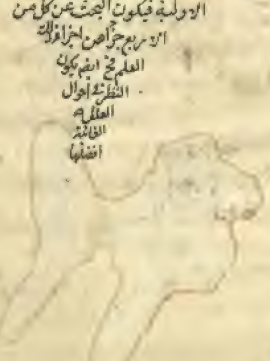 الاولية فيكون البحث عن كل من
الاربع جزأ من اجزاء
العلم فح ايهم يكون
النظر في احوال
العلل
الغائية
افضلها